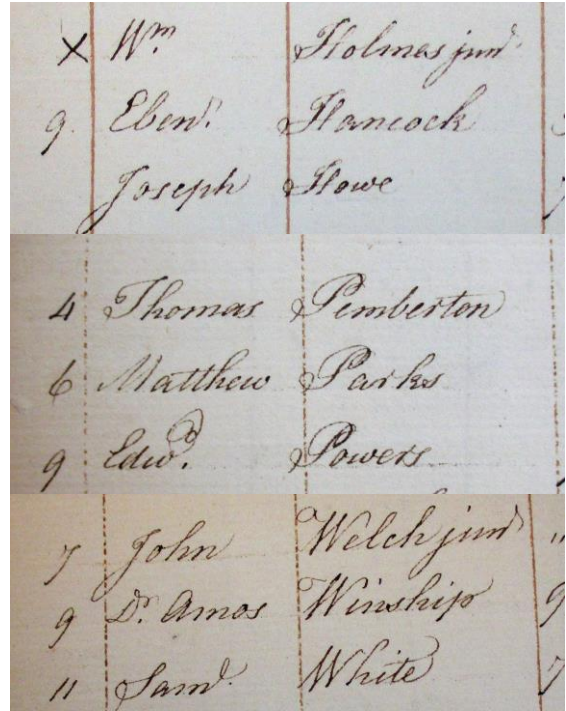 X Wm Holmes junr
9. Ebenr. Hancock
Joseph Howe
4 Thomas Pemberton
6 Matthew Parks
9 Edwd. Powers
7 John Welch junr "
9 Dr. Amos Winship 9
11 Saml. White 7